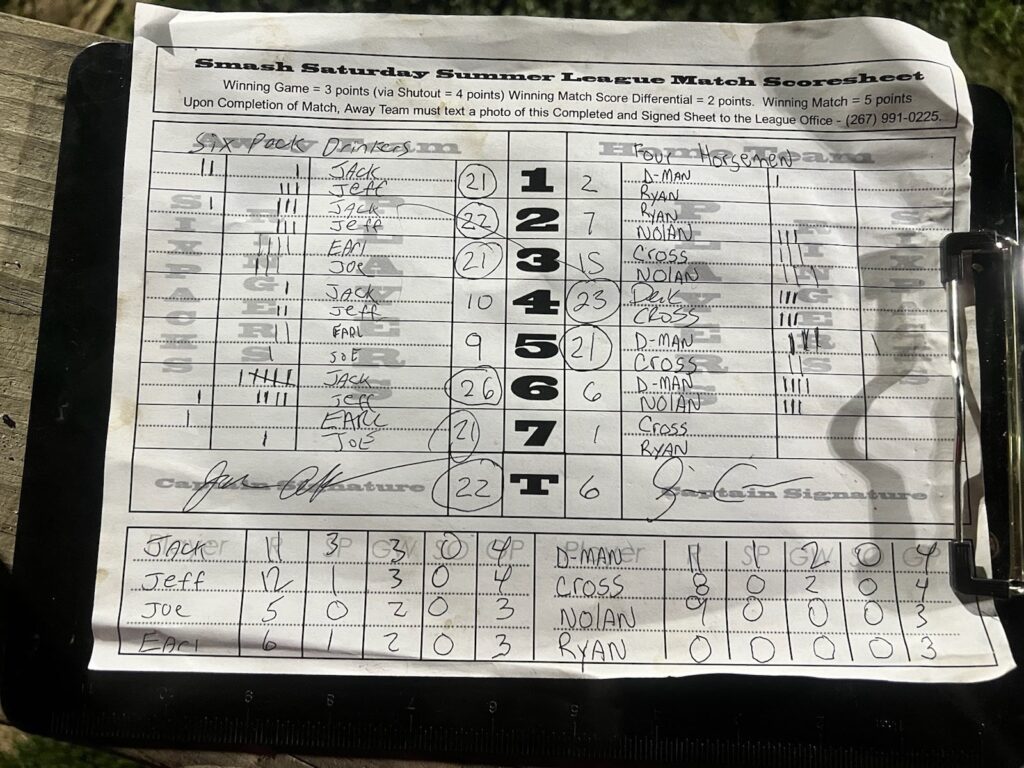 Smash Saturday Summer League Match Scoresheet
Winning Game = 3 points (via Shutout = 4 points) Winning Match Score Differential = 2 points. Winning Match = 5 points
Upon Completion of Match, Away Team must text a photo of this Completed and Signed Sheet to the League Office - (267) 991-0225.
Six Pack Drinkers Four Horsemen Home Team
JACK D-MAN
21 1 2
Jeff RYAN
JACK RYAN
22 2 7
Jeff NOLAN
EARl Cross
21 3 15
JOE NOLAN
JACK Derk
10 4 23
Jeff CROSS
EARL D-MAN
9 5 21
JOE Cross
JACK D-MAN
26 6 6
Jeff NOLAN
EARL Cross
21 7 1
JOE RYAN
Captain Signature 22 T 6 Captain Signature
SIXPACKS FINGERS PLAYERS PLAYERS FINGERS SIXPACKS
Player R SP GW SO GP Player R SP GW SO GP
JACK 11 3 3 0 4 D-MAN 11 1 2 0 4
Jeff 12 1 3 0 4 CROSS 8 0 2 0 4
Joe 5 0 2 0 3 NOLAN 9 0 0 0 3
EARl 6 1 2 0 3 RYAN 0 0 0 0 3